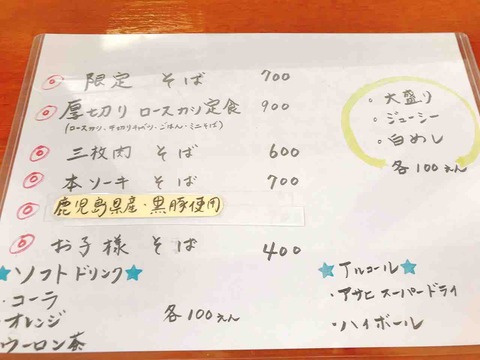 ◎ 限定 そば 700
◎ 厚切り ロースカツ定食 900
(ロースカツ・千切りキャベツ・ごはん・ミニそば)
◎ 三枚肉 そば 600
◎ 本ソーキ そば 700
鹿児島県産・黒豚使用
◎ お子様 そば 400
・大盛り
・ジューシー
・白めし
各100えん
★ソフトドリンク★
・コーラ
・オレンジ
・ウーロン茶
各100えん
★アルコール★
・アサヒスーパードライ
・ハイボール